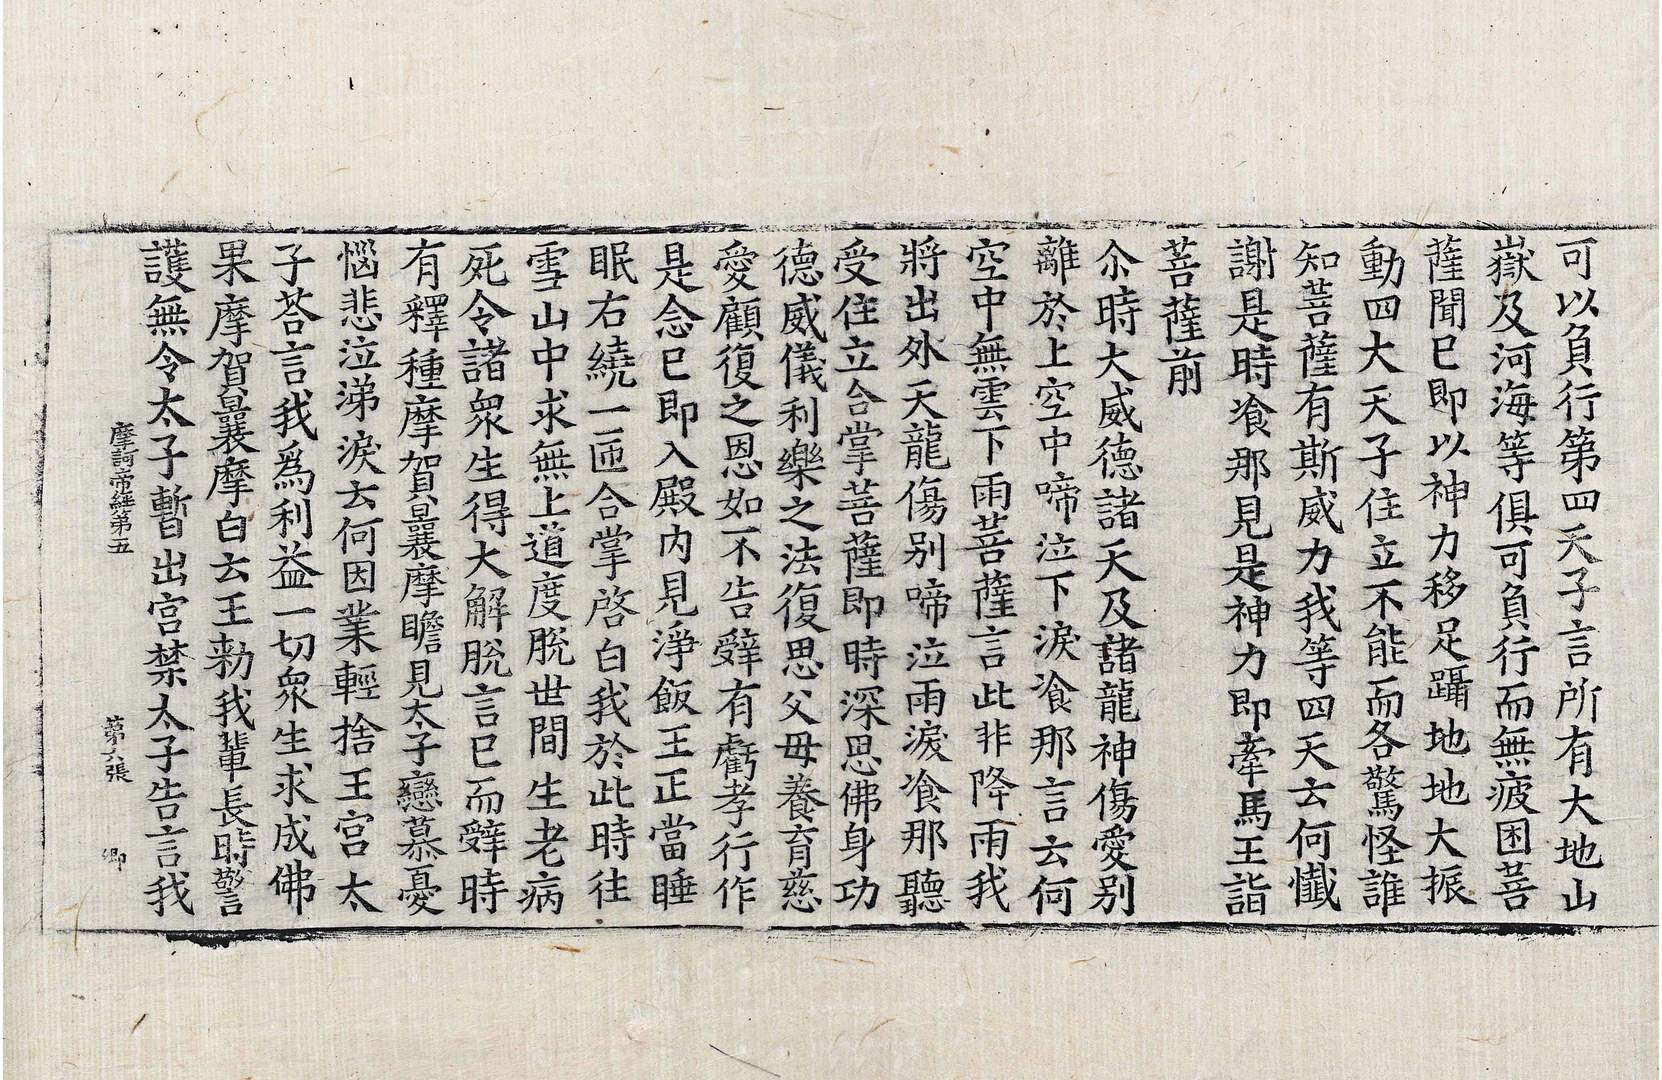 可以負行第四天子言所有大地山
嶽及河海等俱可負行而無疲困菩
薩聞已即以神力移足躡地地大振
動四大天子住立不能而各驚怪誰
知菩薩有斯威力我等四天去何懺
謝是時飡那見是神力即牽馬王詣
菩薩前
尒時大威德諸天及諸龍神傷愛别
離於上空中啼泣下淚飡那言去何
空中無雲下雨菩薩言此非降雨我
將出外天龍傷别啼泣雨淚飡那聽
受住立合掌菩薩即時深思佛身功
德威儀利樂之法復思父母養育慈
愛顧復之恩如不告辭有虧孝行作
是念已即入殿内見淨飯王正當睡
眠右繞一匝合掌啓白我於此時往
雪山中求無上道度脫世間生老病
死令諸衆生得大解脫言已而辭時
有釋種摩賀曩摩瞻見太子戀慕憂
惱悲泣涕淚去何因業輕捨王宫太
子荅言我爲利益一切衆生求成佛
果摩賀曩摩白去王勑我輩長時警
護無令太子暫出宫禁太子告言我
摩訶帝經第五 第六張 卿